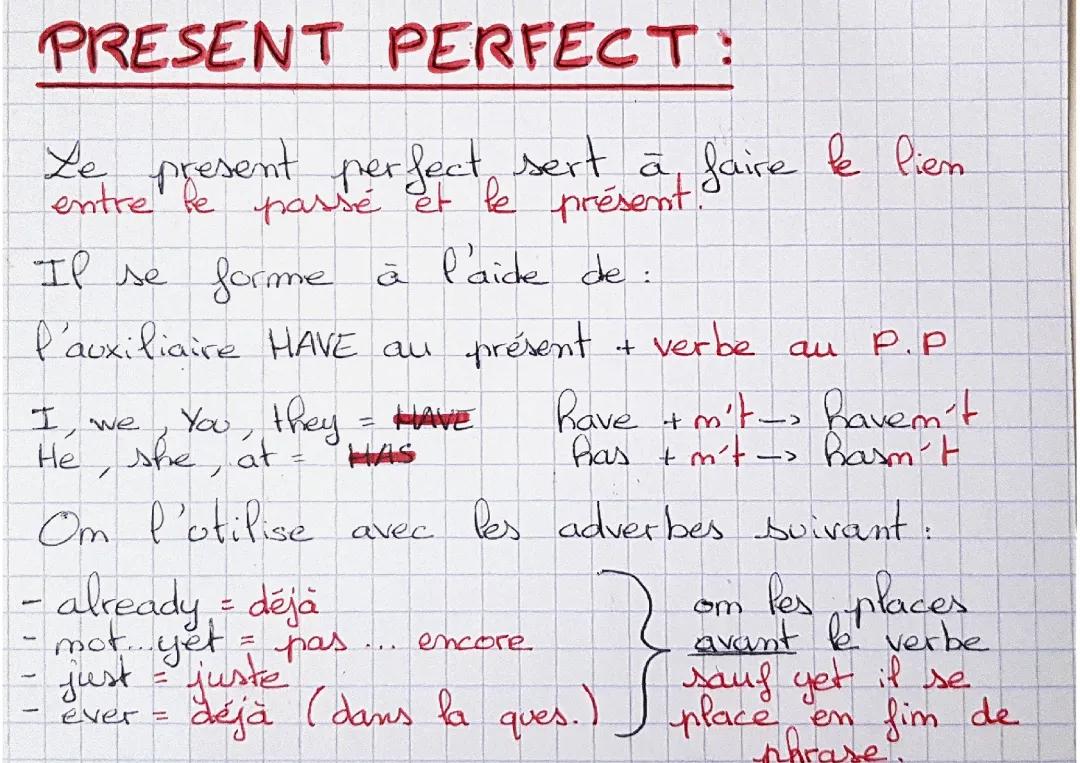 PRESENT PERFECT :
Le present perfect sert à faire le lien
entre le passé et le présent.
Il se forme à l'aide de :
l'auxiliaire HAVE au présent + verbe au P.P
I, we, You, they = HAVE have + n't -> haven't
He, she, at = HAS has + n't -> hasn't
On l'utilise avec les adverbes suivant :
- already = déjà
- not...yet = pas ... encore
- just = juste
- ever = déjà (dans la ques.)
on les places
avant le verbe
sauf yet il se
place en fin de
phrase.